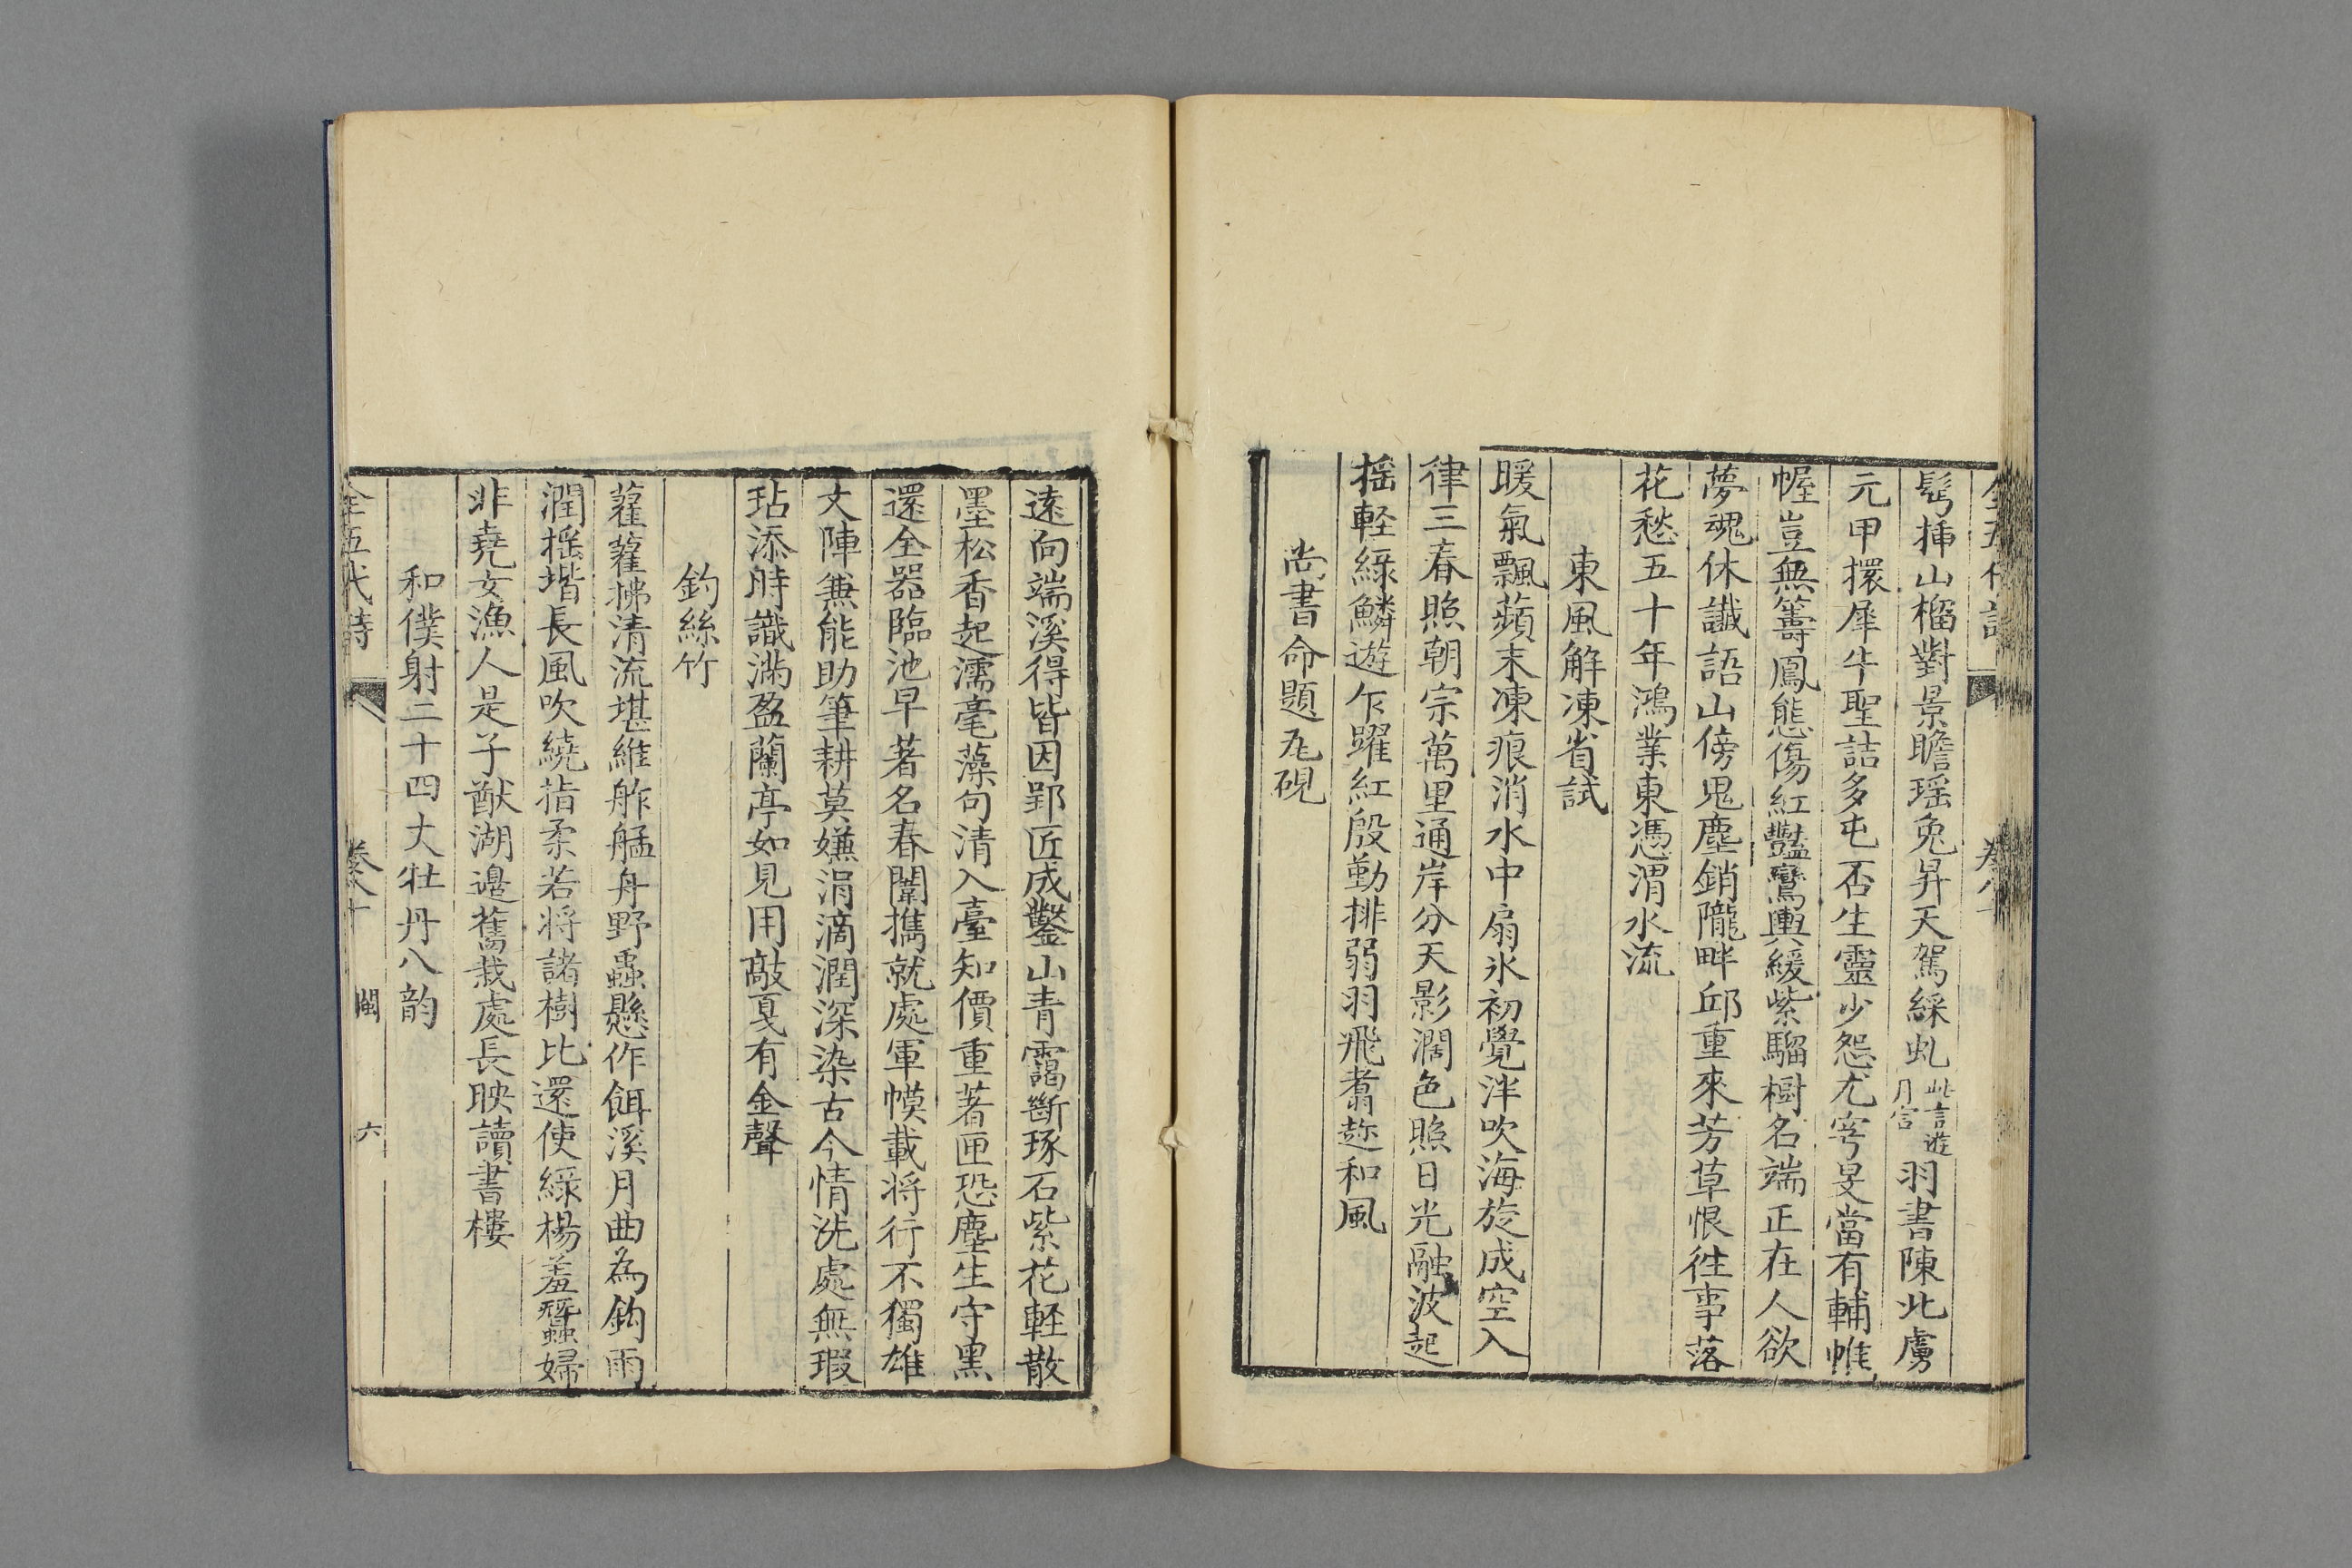 髩插山榴對景瞻瑶兔昇天駕綵虬此言遊月宮羽書陳北虜
元甲擐犀牛聖詰多屯否生靈少怨尤穹旻當有輔帷
幄豈無籌鳳態傷紅豔鸞輿緩紫騮樹名端正在人欲
夢魂休讖語山傍鬼塵銷隴畔邱重來芳草恨往事落
花愁五十年鴻業東憑渭水流
東風解凍省試
暖氣飄蘋末凍痕消水中扇氷初覺泮吹海旋成空入
律三春照朝宗萬里通岸分天影濶色照日光融波起
揺輕緑鱗遊乍躍紅殷勤排弱羽飛翥趂和風
尚書命題瓦硯
遠向端溪得皆因郢匠成鑿山青靄斷琢石紫花輕散
墨松香起濡毫藻句清入臺知價重著匣恐塵生守黒
還全器臨池早著名春闈携就處軍幙載將行不獨雄
文陣兼能助筆耕莫嫌涓滴潤深染古今情洗處無瑕
玷添時識滿盈蘭亭如見用敲戛有金聲
釣絲竹
蘿蘿拂清流堪維舴艋舟野蟲懸作餌溪月曲為鈎雨
潤揺堦長風吹繞指柔若將諸樹比還使緑楊羞蠶婦
非堯女漁人是子猷湖邊舊栽處長映讀書樓
和僕射二十四丈牡丹八韵
全五代詩 卷八十 閩 六